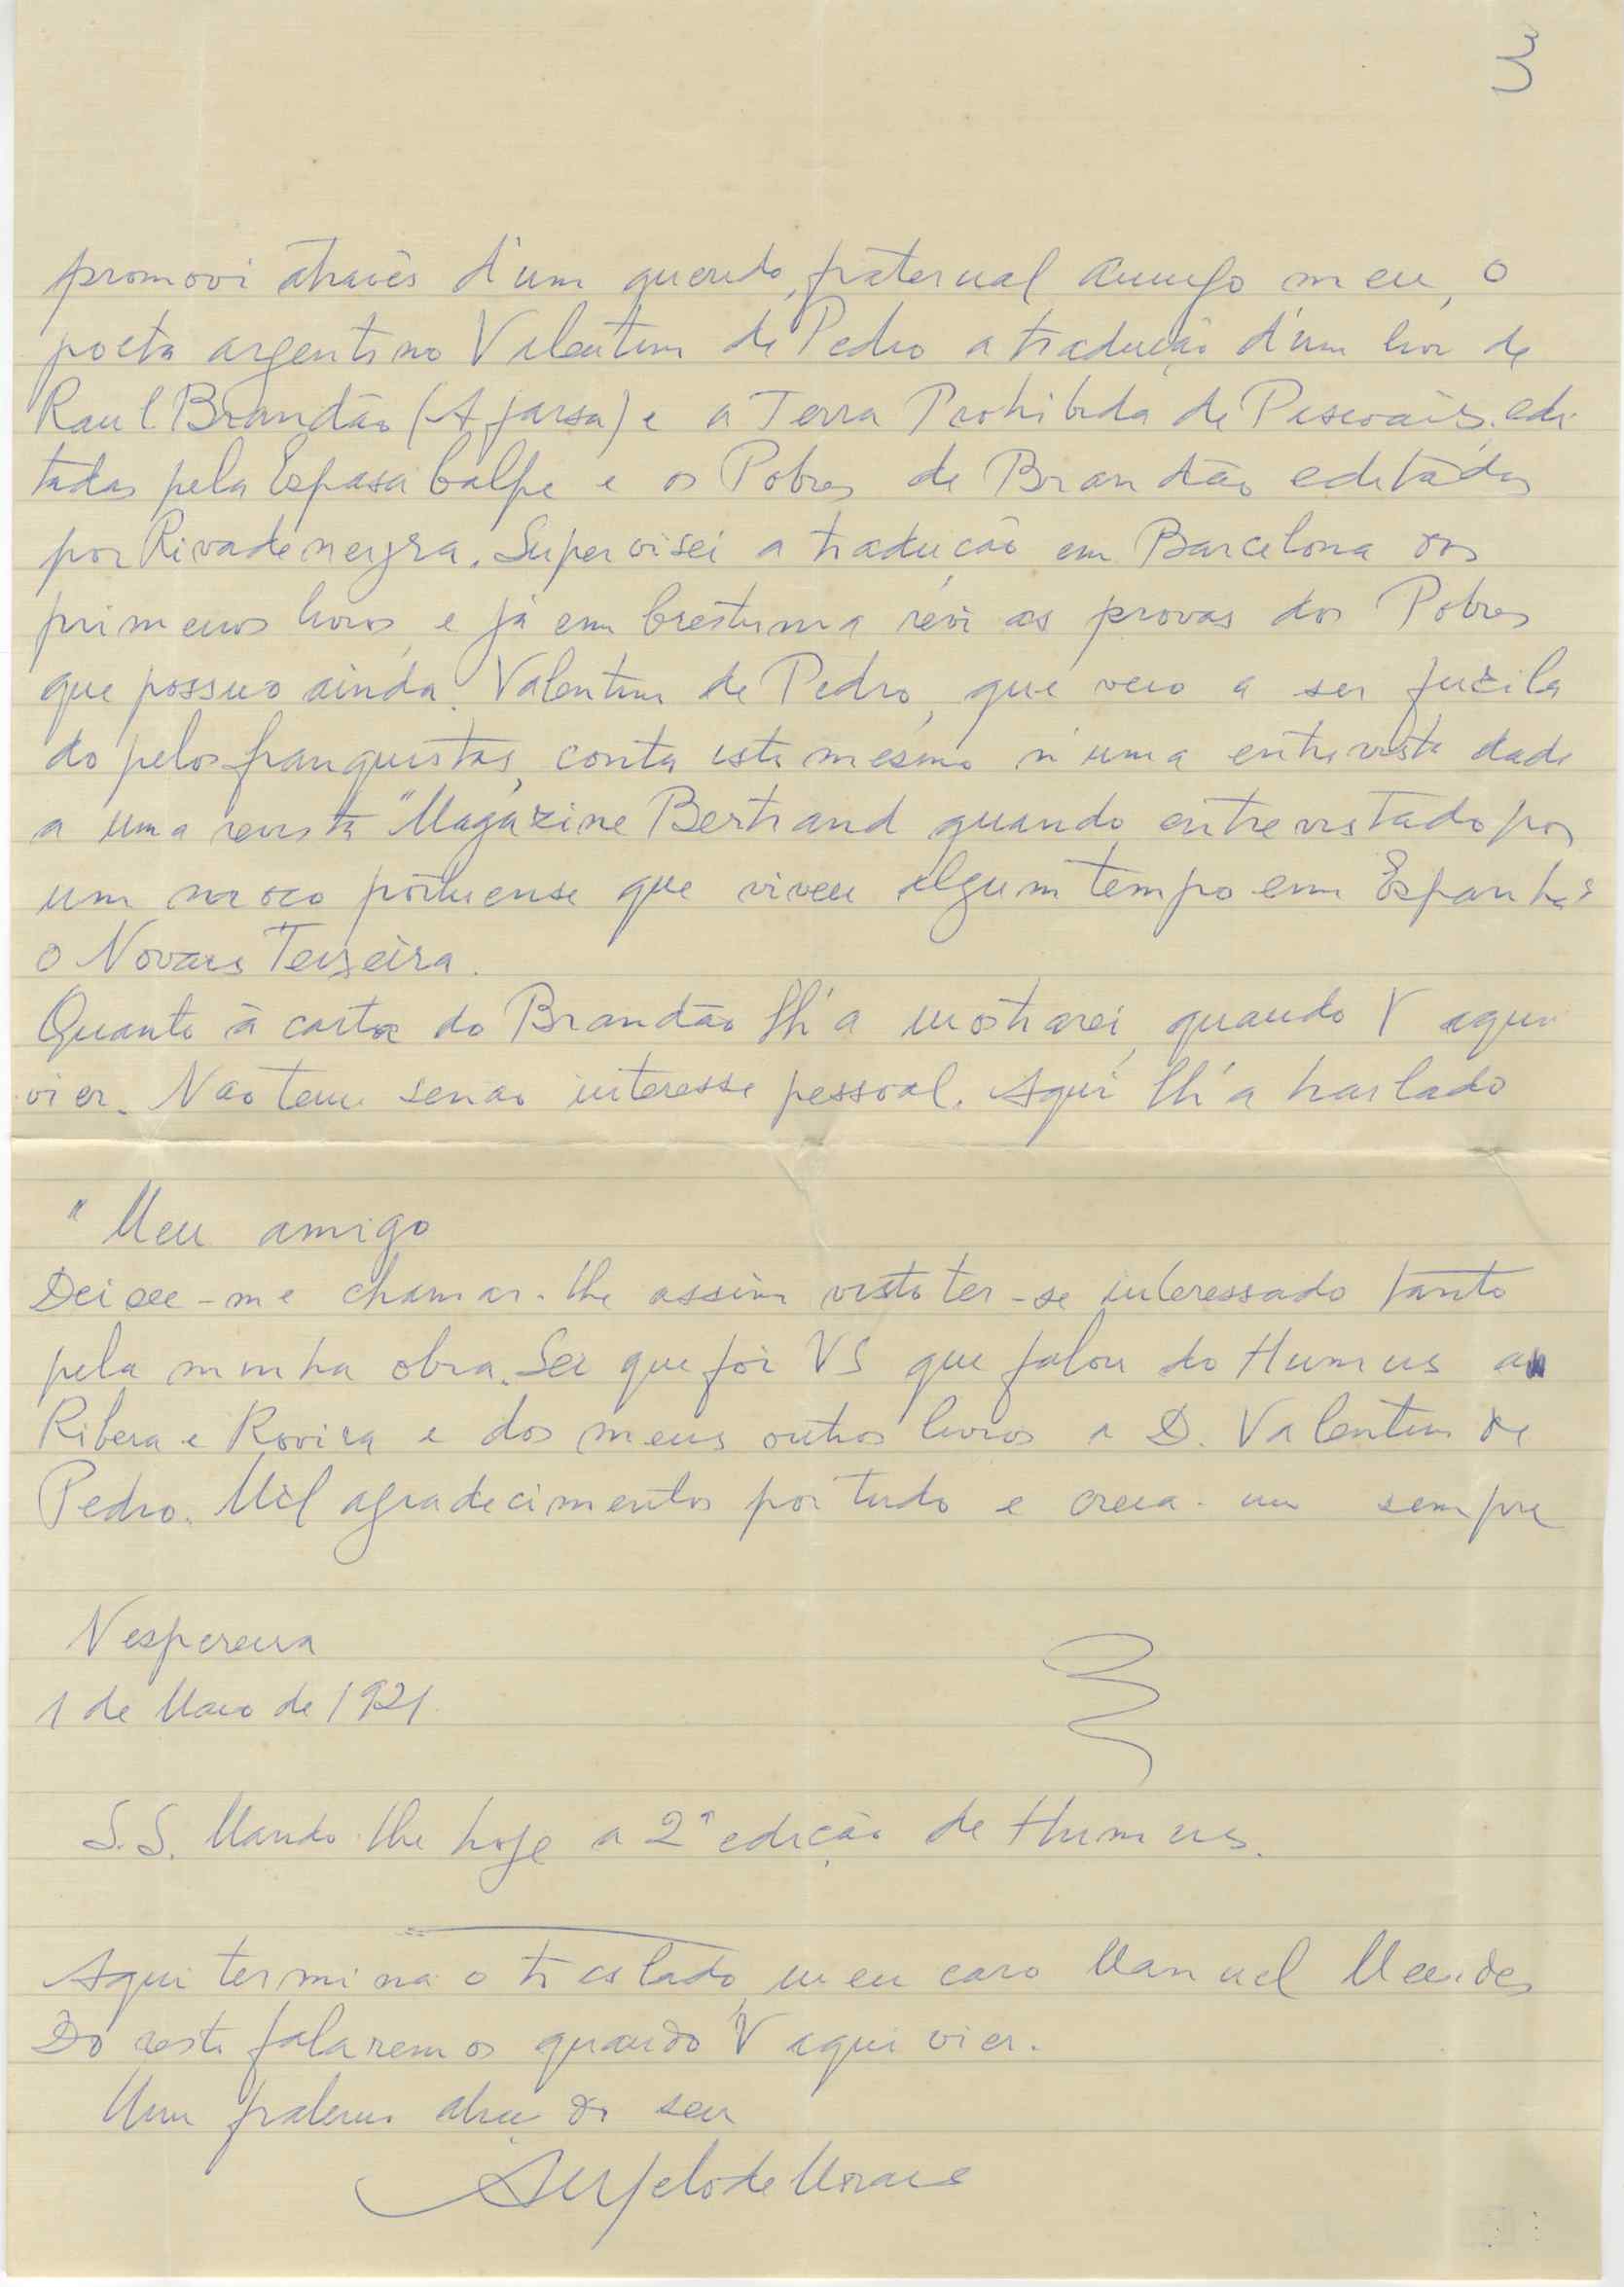 3
promovi através d'um querido, fraternal amigo meu, o
poeta argentino Valentim de Pedro a tradução d'um livro de
Raul Brandão (A farsa) e a Terra Prohibida de Pascoais, edi
tadas pela Espasa Calpe e os Pobres de Brandão editados
por Rivadeneyra. Supervisei a tradução em Barcelona dos
primeiros livros, e já em Crestuma revi as provas dos Pobres
que possuo ainda. Valentim de Pedro, que veio a ser fuzila
do pelos franquistas, conta isto mesmo n'uma entrevista dada
a uma revista "Magazine Bertrand quando entrevistado por
um moço portuense que viveu algum tempo em Espanha
o Novais Teixeira.
Quanto à carta do Brandão lh'a mostrarei, quando V aqui
vier. Nao tem senao interesse pessoal. Aqui lh'a traslado
"Meu amigo
Deixe-me chamar-lhe assim visto ter-se interessado tanto
pela minha obra. Sei que foi VS que falou do Humus a
Ribera e Rovira e dos meus outros livros a D. Valentim de
Pedro. Mil agradecimentos por tudo e creia-me sempre
Nespereira
1 de Maio de 1921.
S.S. Mando-lhe hoje a 2ª edição de Humus.
Aqui termina o traslado, meu caro Manuel Mendes
Do resto falaremos quando V aqui vier.
Um fraterno abraço do seu
de Morais